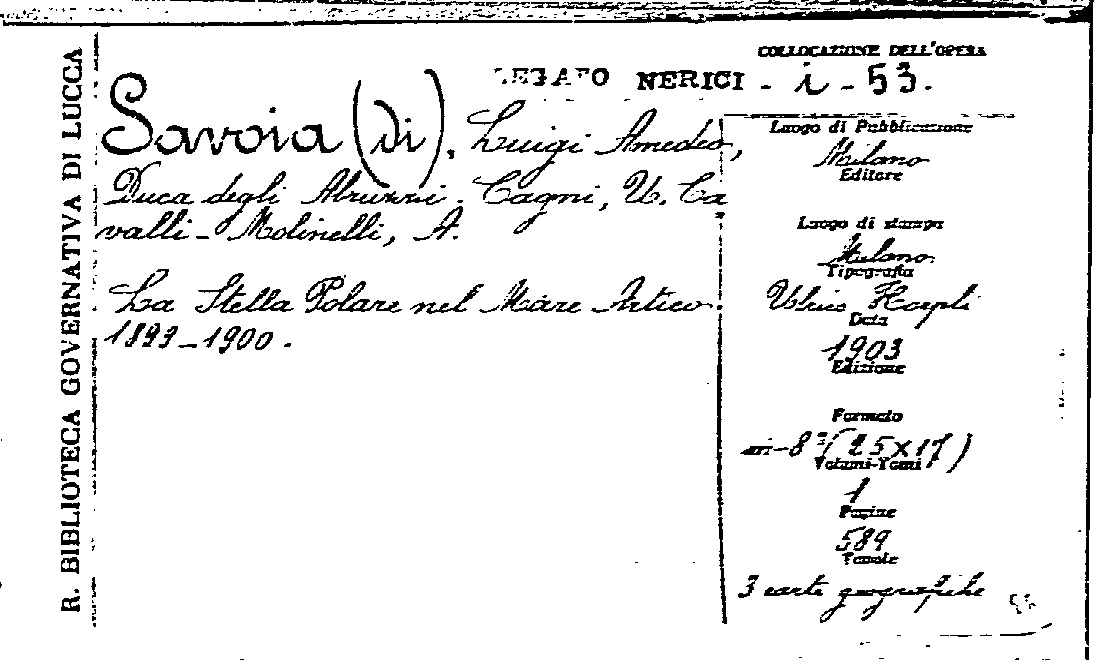 R. BIBLIOTECA GOVERNATIVA DI LUCCA
COLLOCAZIONE DELL'OPERA
LEGATO NERICI - i - 53.
Savoia (di), Luigi Amedeo,
Duca degli Abruzzi. Cagni, U. Ca
valli-Molinelli, A.
La Stella Polare nel Mare Artico.
1899-1900.
Luogo di Pubblicazione
Milano
Editore
Luogo di stampa
Milano
Tipografia
Ulrico Hoepli
Data
1903
Edizione
Formato
in-8° (25x17)
Volumi-Tomi
1
Pagine
589
Tavole
3 carte geografiche